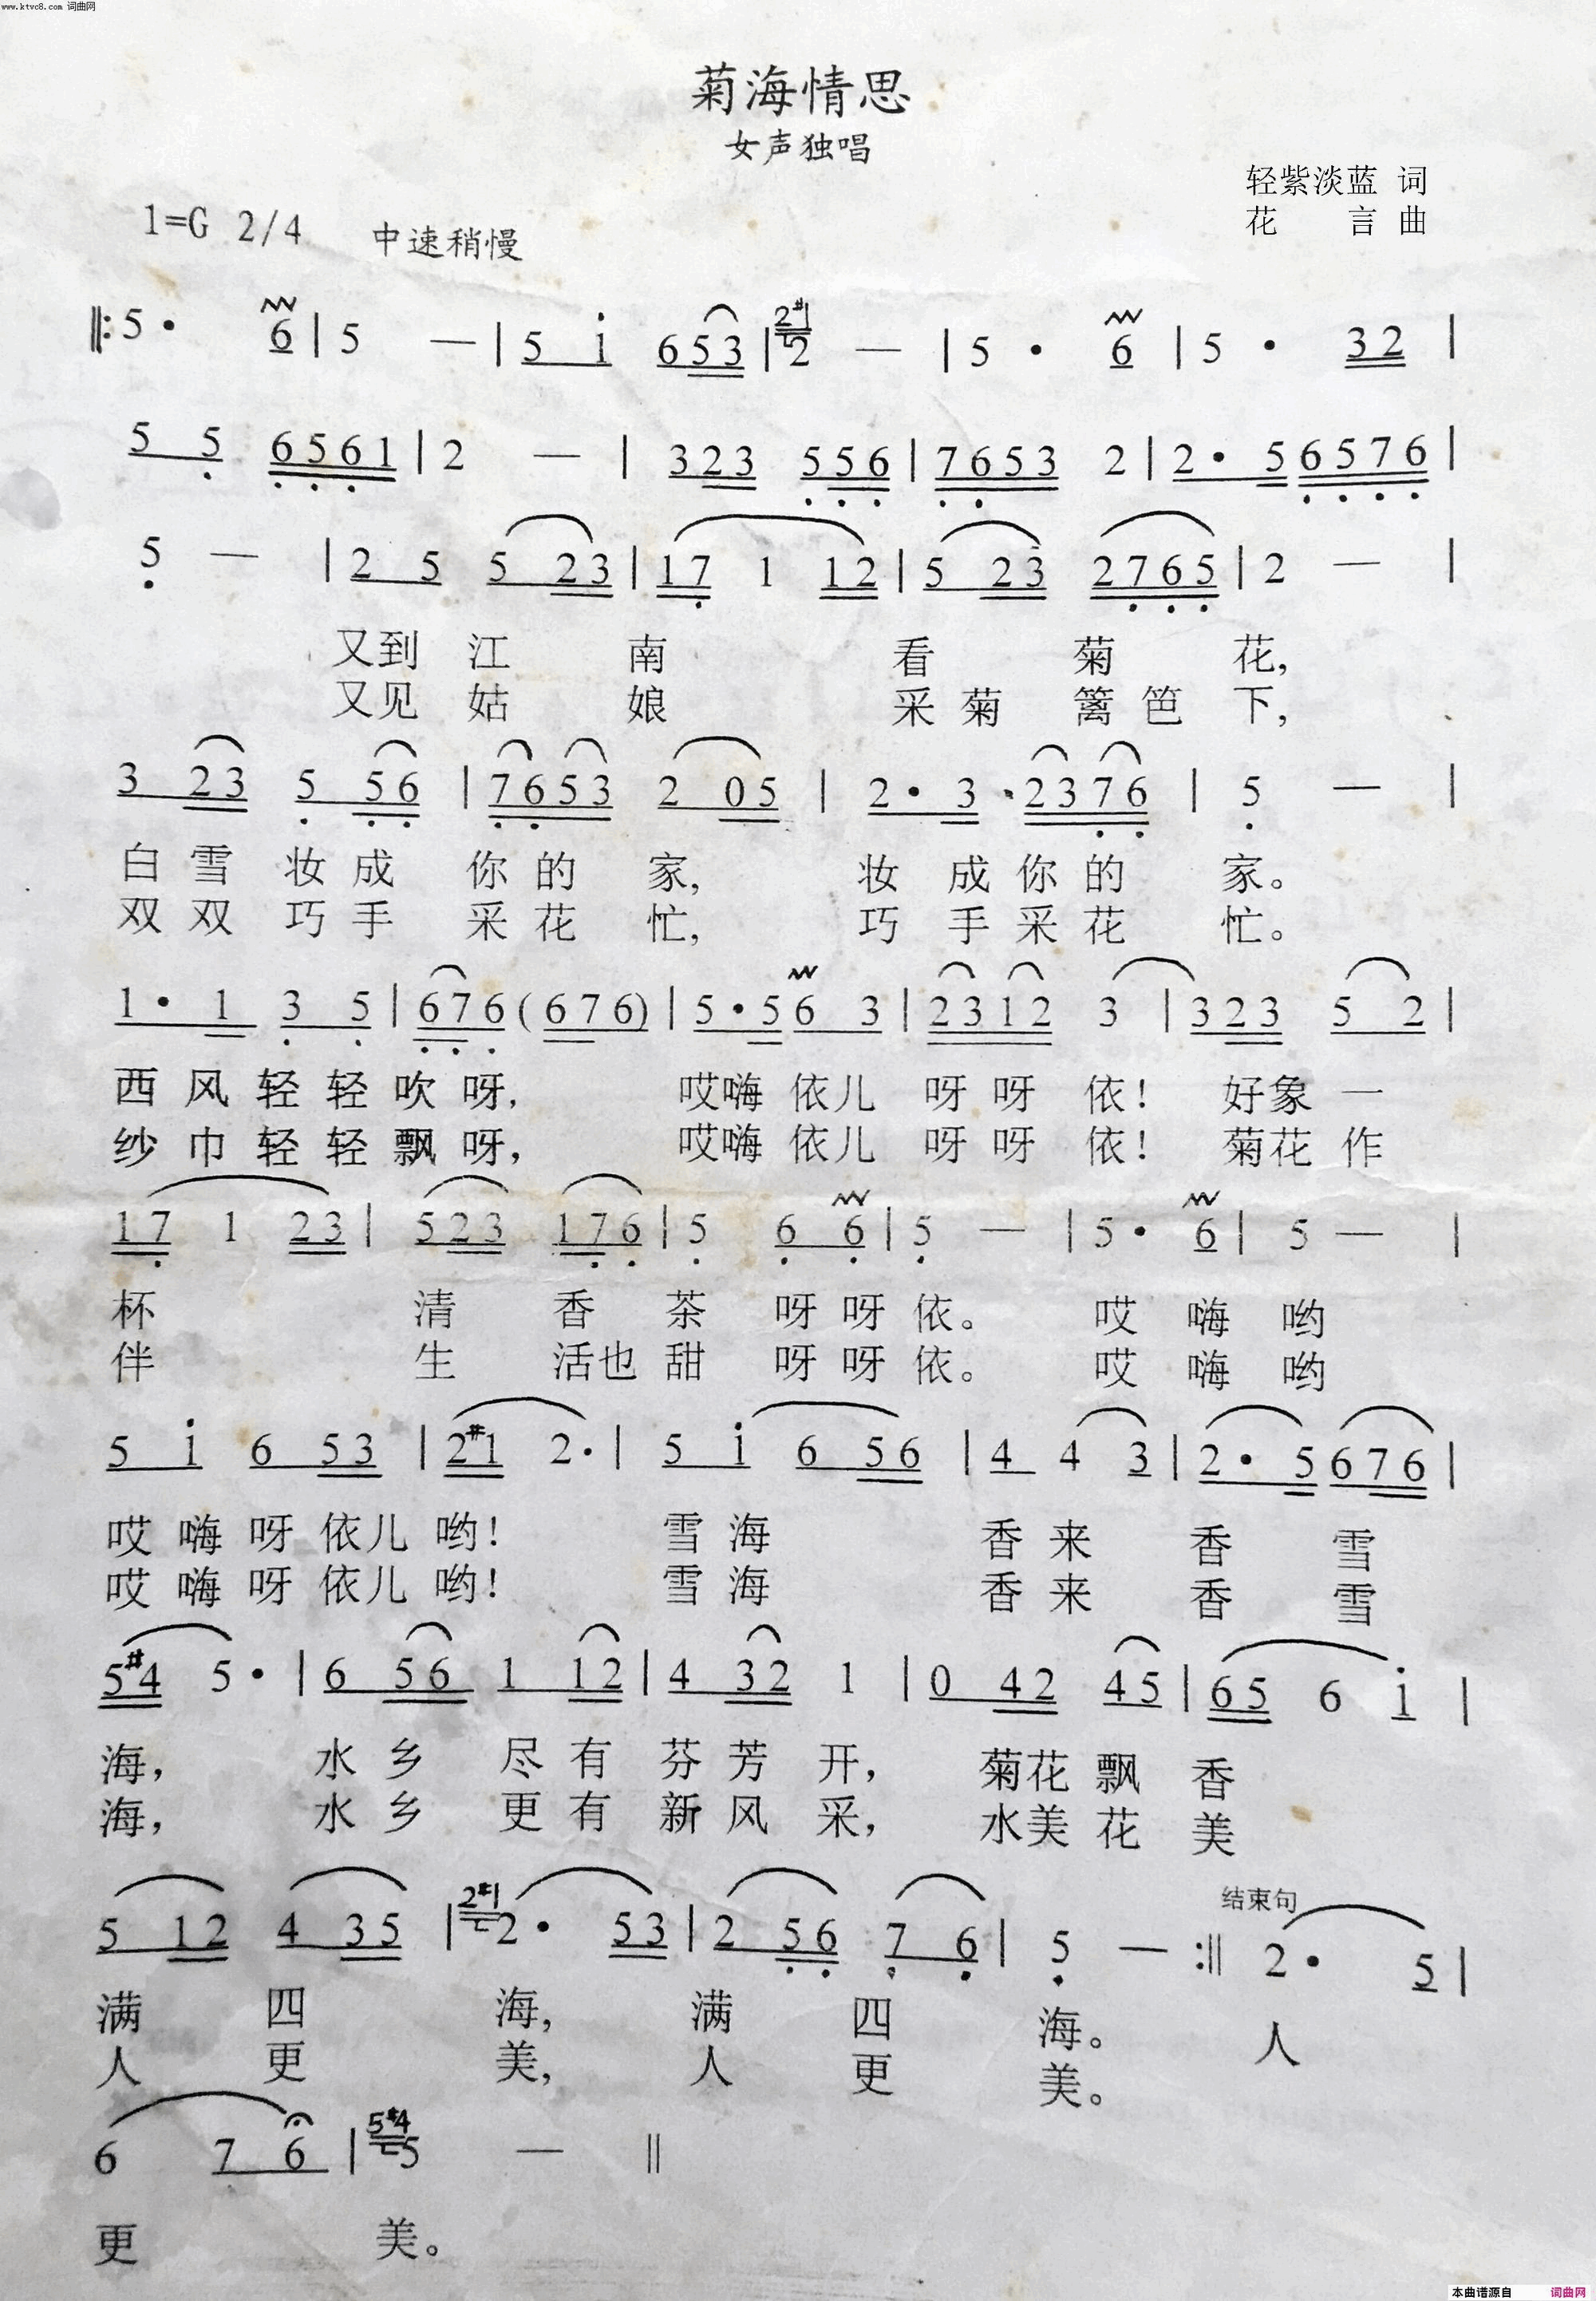 www.ktvc8.com 词曲网
菊海情思
女声独唱
轻紫淡蓝 词
1=G 2/4 中速稍慢
花 言 曲
‖: 5 · 6 | 5 — | 5 i 6 5 3 | 2#1 2 — | 5 · 6 | 5 · 3 2 |
5 5 6 5 6 1 | 2 — | 3 2 3 5 5 6 | 7 6 5 3 2 | 2 · 5 6 5 7 6 |
5 — | 2 5 5 2 3 | 1 7 1 1 2 | 5 2 3 2 7 6 5 | 2 — |
又到 江 南 看 菊 花,
又见 姑 娘 采 菊 篱 笆 下,
3 2 3 5 5 6 | 7 6 5 3 2 0 5 | 2 · 3 2 3 7 6 | 5 — |
白 雪 妆 成 你 的 家, 妆 成 你 的 家。
双 双 巧 手 采 花 忙, 巧 手 采 花 忙。
1 · 1 3 5 | 6 7 6 ( 6 7 6 ) | 5 · 5 6 3 | 2 3 1 2 3 | 3 2 3 5 2 |
西 风 轻 轻 吹 呀, 哎嗨 依儿 呀 呀 依! 好象 一
纱 巾 轻 轻 飘 呀, 哎嗨 依儿 呀 呀 依! 菊花 作
1 7 1 2 3 | 5 2 3 1 7 6 | 5 6 6 | 5 — | 5 · 6 | 5 — |
杯 清 香 茶 呀 呀 依。 哎 嗨 哟
伴 生 活也 甜 呀 呀 依。 哎 嗨 哟
5 i 6 5 3 | 2 #1 2 · | 5 i 6 5 6 | 4 4 3 | 2 · 5 6 7 6 |
哎 嗨 呀 依儿 哟! 雪 海 香 来 香 雪
哎 嗨 呀 依儿 哟! 雪 海 香 来 香 雪
5 #4 5 · | 6 5 6 1 1 2 | 4 3 2 1 | 0 4 2 4 5 | 6 5 6 i |
海, 水 乡 尽 有 芬 芳 开, 菊花 飘 香
海, 水 乡 更 有 新 风 采, 水美 花 美
结束句
5 1 2 4 3 5 | 2#1 2 · 5 3 | 2 5 6 7 6 | 5 — :‖ 2 · 5 |
满 四 海, 满 四 海。 人
人 更 美, 人 更 美。
6 7 6 | 5#4 5 — ‖
更 美。
本曲谱源自 词曲网